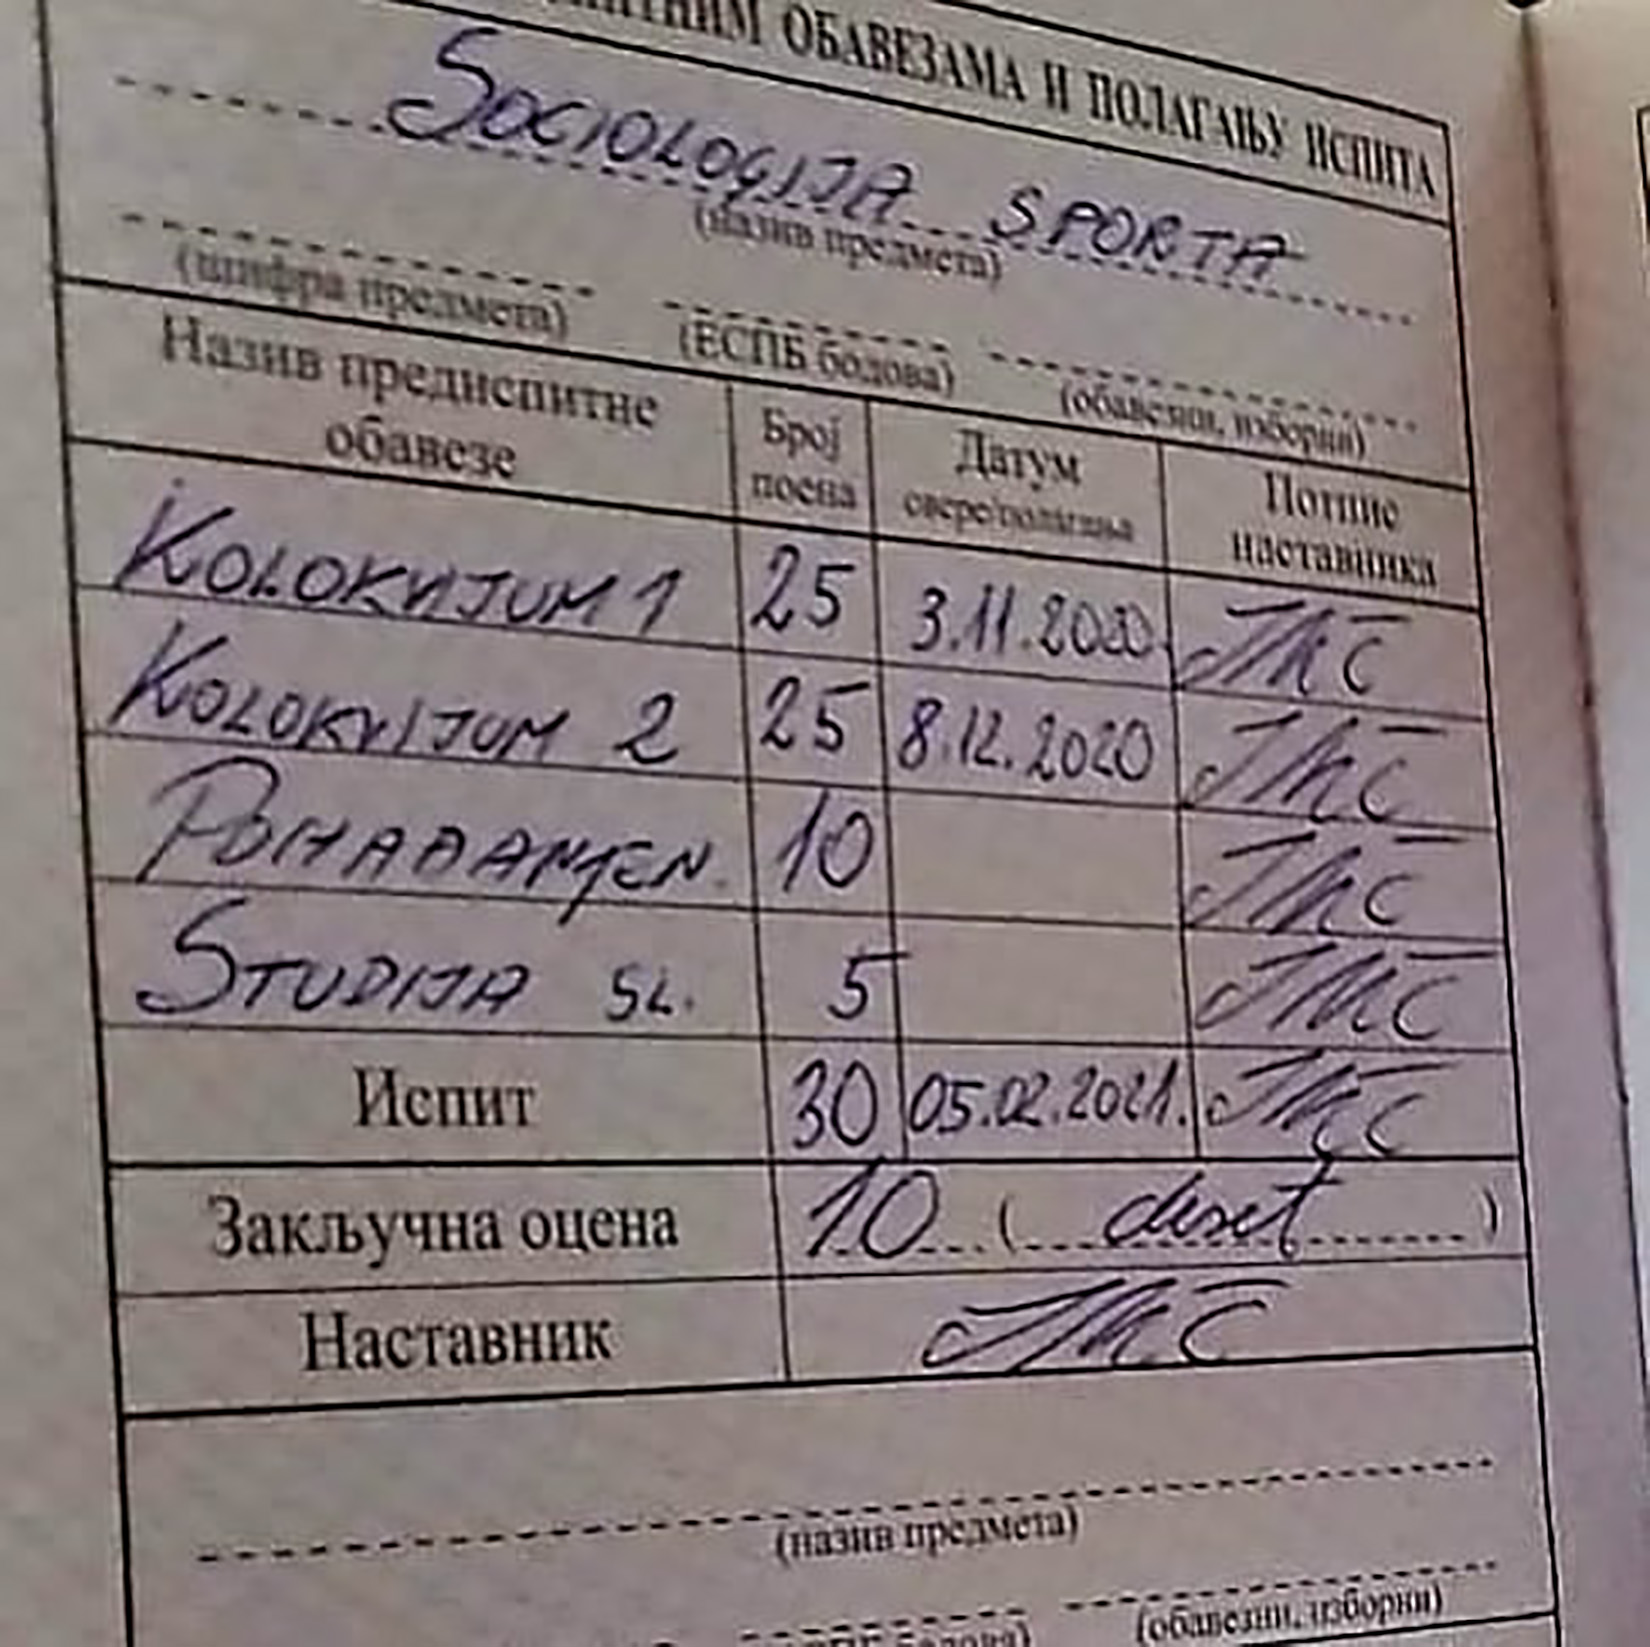 ОБАВЕЗАМА И ПОЛАГАЊУ ИСПИТА
SOCIOLOGIJA SPORTA
(назив предмета)
(шифра предмета) (ЕСПБ бодова) (обавезни, изборни)
Назив предиспитне обавезе Број поена Датум овере/полагања Потпис наставника
KOLOKVIJUM 1 25 3.11.2020.
KOLOKVIJUM 2 25 8.12.2020
10
STUDIJA SL. 5
Испит 30 05.02.2021.
Закључна оцена 10 (deset)
Наставник
(назив предмета)
бодова) (обавезни, изборни)